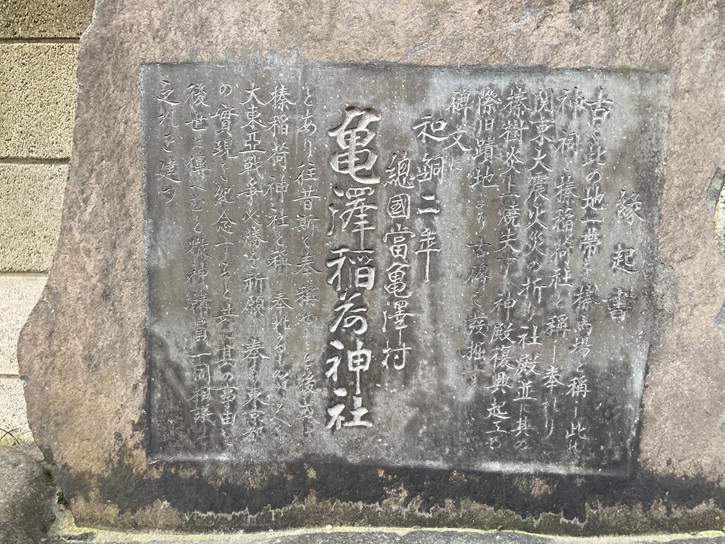 縁起書
古く此の地一帯を榛馬場と称し此の
神祠を榛稲荷社と称し奉れり
関東大震火災の折り社殿並に其の
榛樹炎上焼失す 神殿復興起工の
際旧蹟地より古碑を発掘す
碑文に
和銅二年
總國當亀澤村
亀澤稲荷神社
とあり往昔斯く奉称せしを後
榛稲荷神社と称し奉れる
大東亜戦争必勝を祈願し奉り東京都
の實現を紀念すると共に其の事由を
後世に傳へむと敬神講員一同相謀り
之れを建す